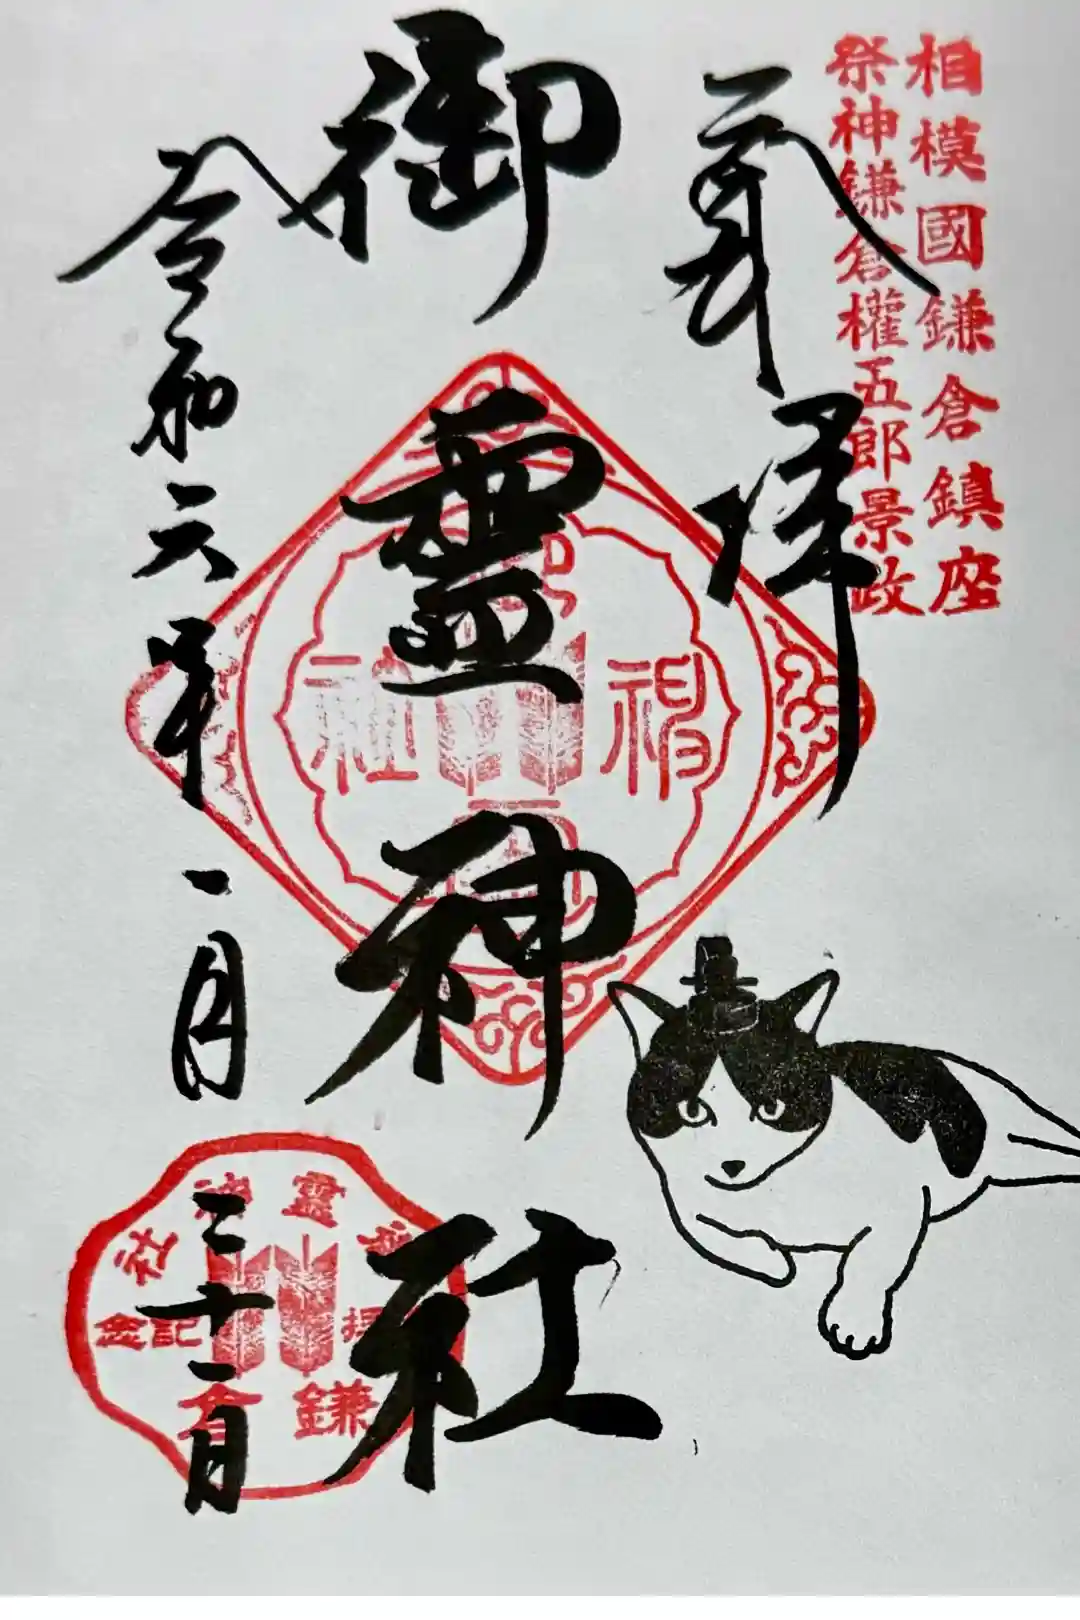 相模國鎌倉鎮座
祭神鎌倉權五郎景政
奉拝
御霊神社
令和六年一月二十一日
神社
霊神社
記念
鎌倉